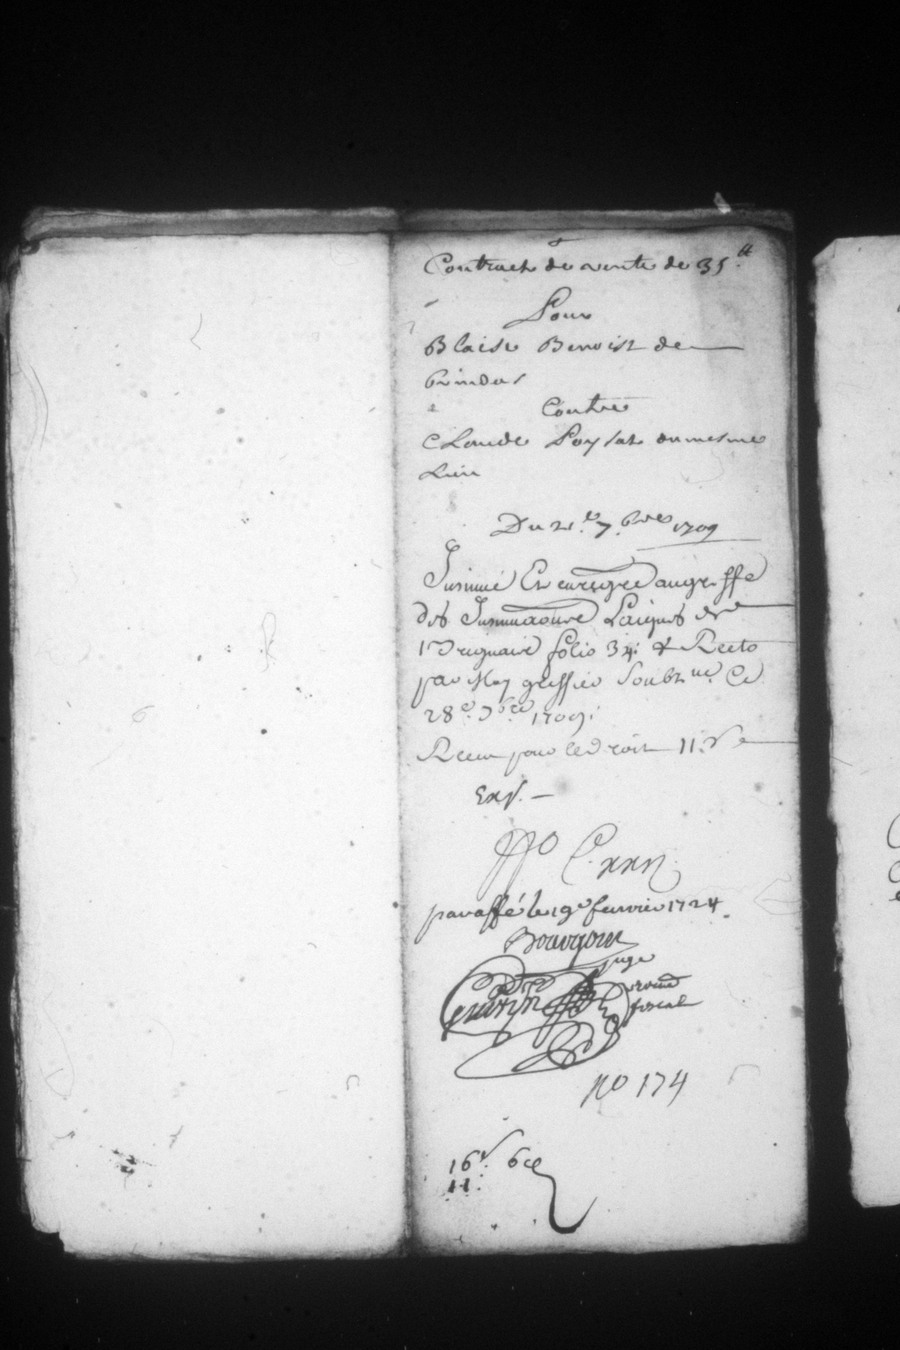 Contract de vente de 35 ₶
Pour
Blaise Benoist de
brindas
Contre
Claude Poysat du mesme
Lieu
Du 21.e 7.bres 1709
Insinué Et enregré au greffe
des Insinuaõns Laiques de
folio 34 Recto
par Moy greffier Soubzné Ce
28e 1709
Receu pour le droit 11
Exp.
paraffé le 19e fevrier 1724.
Bourgoin
juge
fiscal
no 174
16s 6d
11